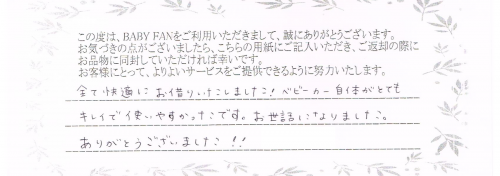 この度は、BABY FANをご利用いただきまして、誠にありがとうございます。
お気づきの点がございましたら、こちらの用紙にご記入いただき、ご返却の際に
お品物に同封していただければ幸いです。
お客様にとって、よりよいサービスをご提供できるように努力いたします。
全て快適にお借りいたしました！ベビーカー自体がとても
キレイで使いやすかったです。お世話になりました。
ありがとうございました！！